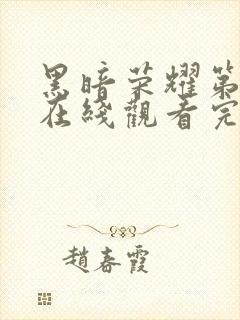 黑暗荣耀第
在线觀看完
趙春霞